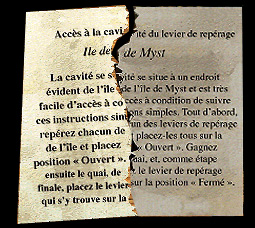 Accès à la cavité du levier de repérage
Ile de Myst
La cavité se situe à un endroit
évident de l'île de Myst et est très
facile d'accès à condition de suivre
ces instructions simples. Tout d'abord,
repérez chacun des leviers de repérage
de l'île et placez-les tous sur la
position « Ouvert ». Gagnez
ensuite le quai, et, comme étape
finale, placez le levier de repérage
qui s'y trouve sur la position « Fermé ».